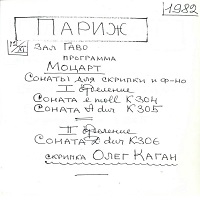 1982
ПАРИЖ
12/XI
ЗАЛ ГАВО
ПРОГРАММА
МОЦАРТ
СОНАТЫ ДЛЯ СКРИПКИ И Ф-НО
I отделение
СОНАТА e moll К 304
СОНАТА A dur К 305
II отделение
СОНАТА D dur К 306
СКРИПКА ОЛЕГ КАГАН